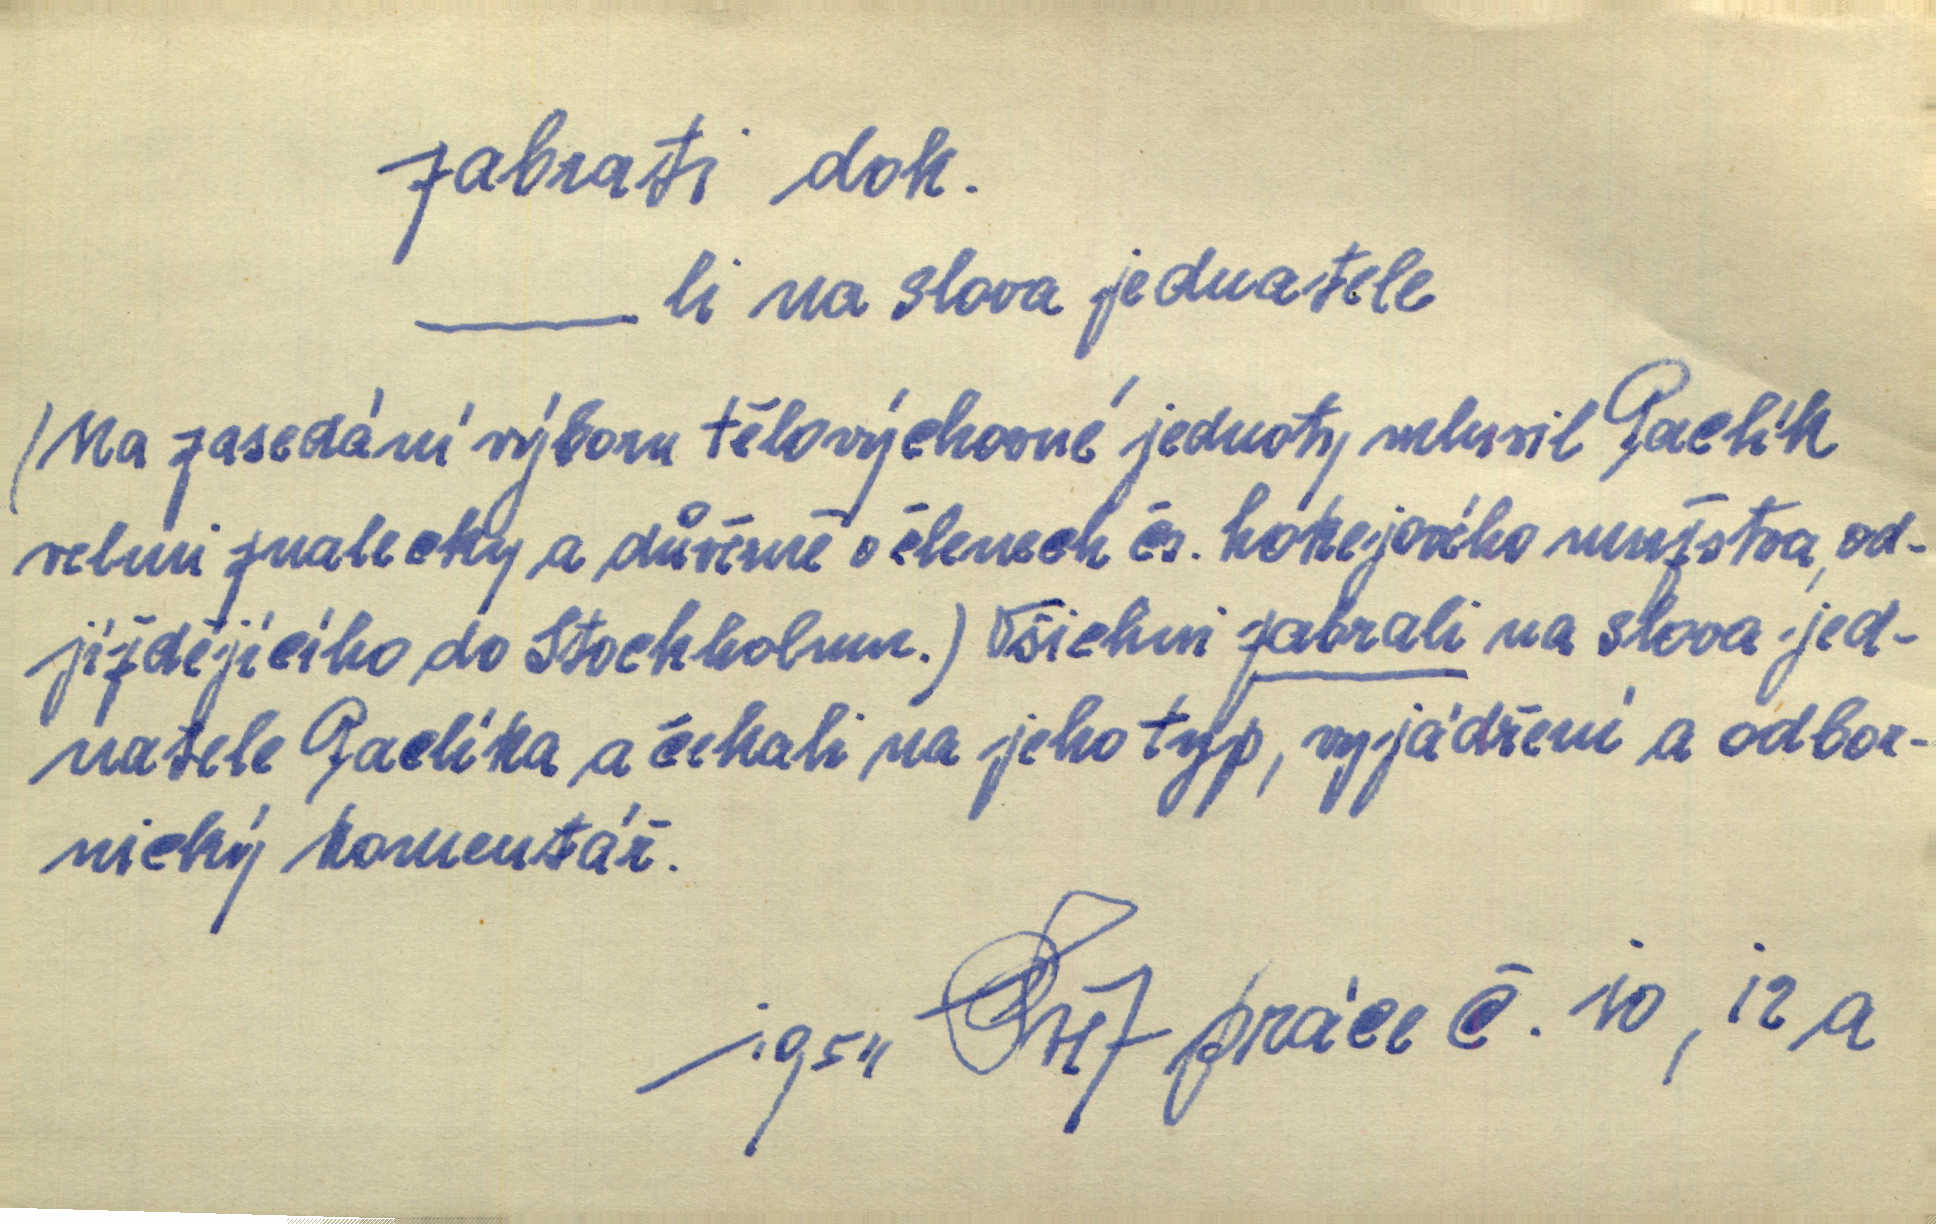 zabrati dok.
____ li na slova jednatele
(Na zasedání výboru tělovýchovné jednoty mluvil Paclík
velmi znalecky a důvěrně o členech čs. hokejového mužstva, od-
jíždějícího do Stockholmu.) Všichni zabrali na slova jed-
natele Paclíka a čekali na jeho typ, vyjádření a odbor-
nický komentář.
1954 Svět práce č. 10, 12 a